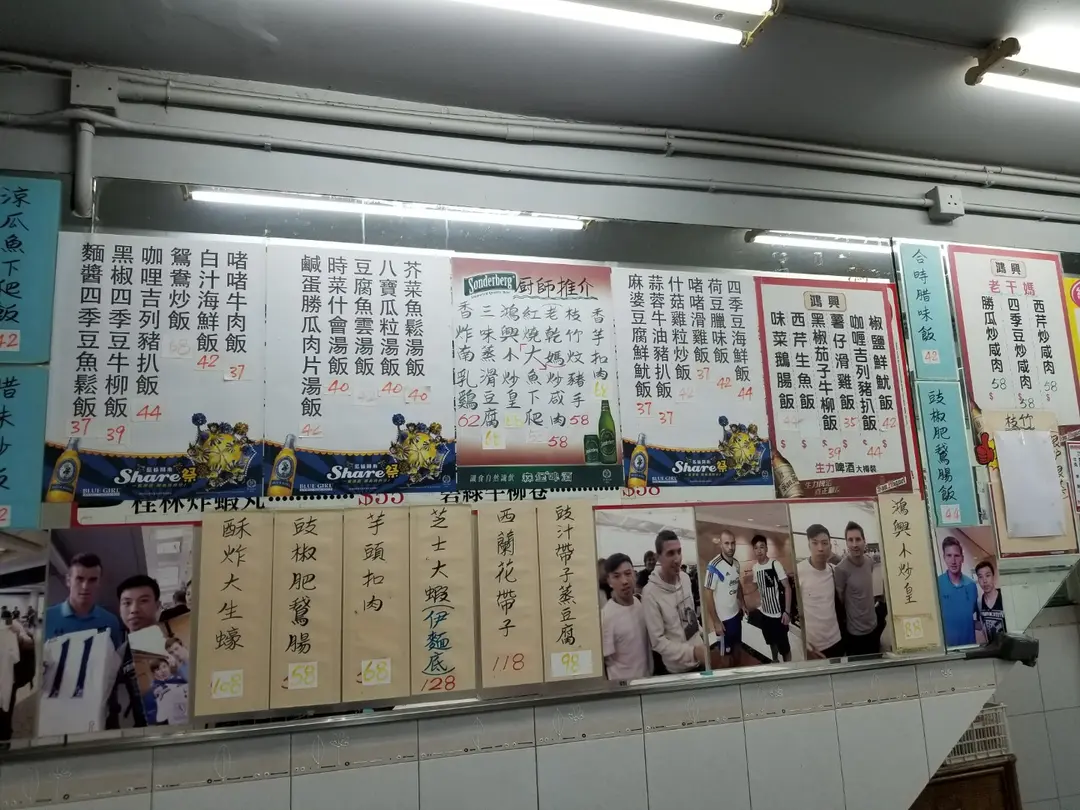 涼瓜魚下爬飯
42
腊味炒飯
2
啫啫牛肉飯
37
白汁海鮮飯
42
鴛鴦炒飯
68
咖哩吉列豬扒飯
44
黑椒四季豆牛柳飯
39
麵醬四季豆魚鬆飯
37
BLUE GIRL
Share祭
芥菜魚鬆湯飯
40
八寶瓜粒湯飯
40
豆腐魚雲湯飯
時菜什會湯飯
40
鹹蛋勝瓜肉片湯飯
BLUE GIRL
Share祭
Sonderberg
厨師推介
香芋扣肉
枝竹炆豬手
58
老乾媽炒咸肉
58
紅燒大魚下爬
鴻興小炒皇
三味蒸滑豆腐
香炸南乳鷄
62
識食自然識飲
森堡啤酒
四季豆海鮮飯
44
荷豆臘味飯
42
啫啫滑雞飯
37
什菇雞粒炒飯
蒜蓉牛油豬扒飯
37
麻婆豆腐鮮魷飯
37
BLUE GIRL
Share祭
鴻興
椒鹽鮮魷飯
$
42
咖喱吉列豬扒飯
$
44
薯仔滑雞飯
$
35
黑椒茄子牛柳飯
$
39
西芹生魚飯
$
味菜鵝腸飯
$
生力啤酒大樽裝
合時腊味飯
42
豉椒肥鵞腸飯
44
鴻興
老干媽
西芹炒咸肉
58
四季豆炒咸肉
58
勝瓜炒咸肉
58
枝竹
$55
$58
酥炸大生蠔
108
豉椒肥鵞腸
68
芋頭扣肉
68
芝士大蝦伊麵底
128
西蘭花帶子
118
豉汁帶子蒸豆腐
98
鴻興小炒皇
88
11